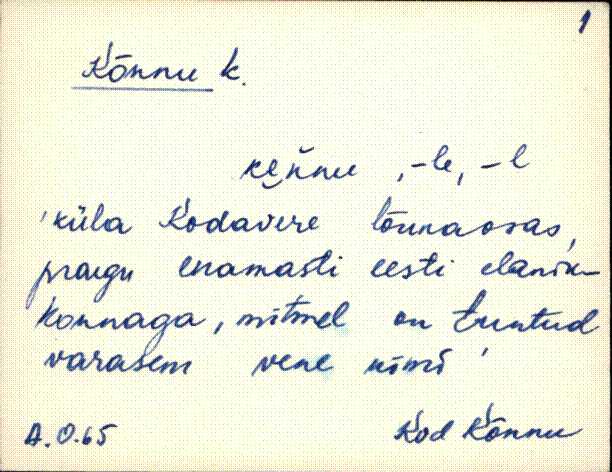 1
Kõnnu k.
ke̮ňnu, -le, -l
'küla Kodavere lõunaosas,
praegu enamasti eesti elanik-
konnaga, mitmel on tuntud
varasem vene nimi'
A. O. 65
Kod Kõnnu